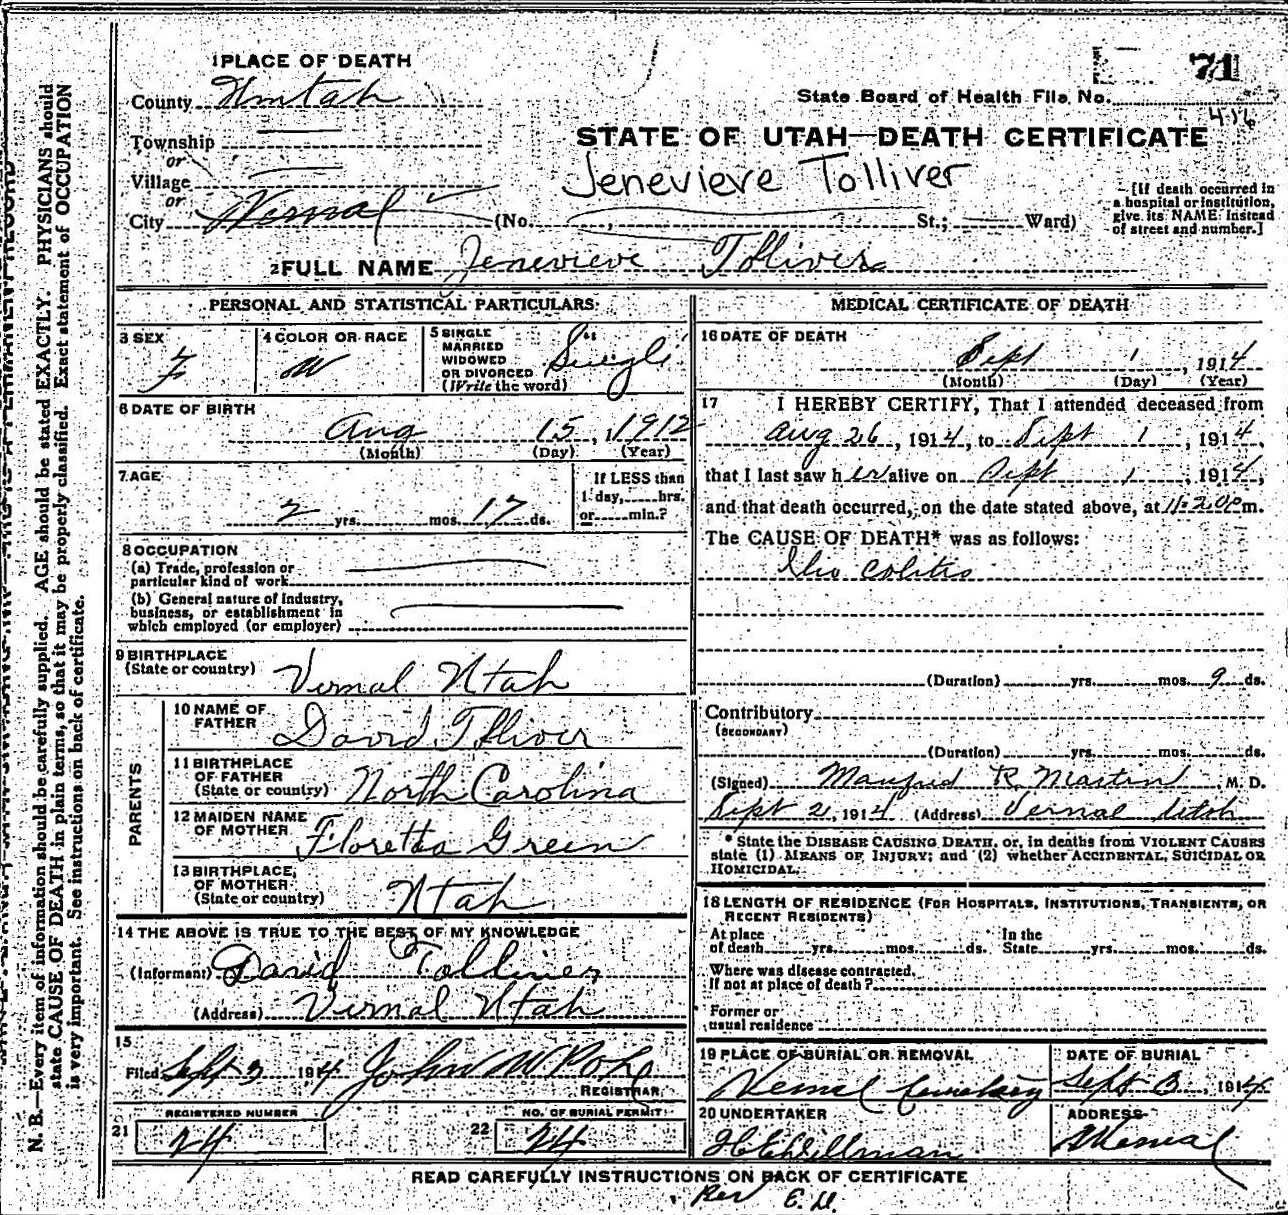 1 PLACE OF DEATH
71
County Uintah
State Board of Health File No.
416
Township
STATE OF UTAH—DEATH CERTIFICATE
or
Village
Jenevieve Tolliver
or
City Vernal (No. St.; Ward)
[If death occurred in
a hospital or institution,
give its NAME instead
of street and number.]
2 FULL NAME Jenevieve Tolliver
PERSONAL AND STATISTICAL PARTICULARS
3 SEX
F
4 COLOR OR RACE
W
5 SINGLE
MARRIED
WIDOWED
OR DIVORCED
(Write the word)
Single
6 DATE OF BIRTH
Aug 15, 1912
(Month) (Day) (Year)
7 AGE
2 yrs. mos. 17 ds.
If LESS than
1 day, hrs.
or min.?
8 OCCUPATION
(a) Trade, profession or
particular kind of work
(b) General nature of industry,
business, or establishment in
which employed (or employer)
9 BIRTHPLACE
(State or country) Vernal Utah
PARENTS
10 NAME OF
FATHER David Tolliver
11 BIRTHPLACE
OF FATHER
(State or country) North Carolina
12 MAIDEN NAME
OF MOTHER Floretta Green
13 BIRTHPLACE,
OF MOTHER
(State or country) Utah
14 THE ABOVE IS TRUE TO THE BEST OF MY KNOWLEDGE
(Informant) David Tolliver
(Address) Vernal Utah
15
Filed Sept 3 1914 John M
REGISTRAR
REGISTERED NUMBER
21 24
NO. OF BURIAL PERMIT
22 24
MEDICAL CERTIFICATE OF DEATH
16 DATE OF DEATH
Sept 1, 1914
(Month) (Day) (Year)
17 I HEREBY CERTIFY, That I attended deceased from
Aug 26, 1914, to Sept 1, 1914,
that I last saw her alive on Sept 1, 1914,
and that death occurred, on the date stated above, at 11:20 P m.
The CAUSE OF DEATH* was as follows:
Ilio colitis
(Duration) yrs. mos. 9 ds.
Contributory
(SECONDARY)
(Duration) yrs. mos. ds.
(Signed) Manfred R. Martin, M. D.
Sept 2, 1914 (Address) Vernal Utah
* State the DISEASE CAUSING DEATH, or, in deaths from VIOLENT CAUSES
state (1) MEANS OF INJURY; and (2) whether ACCIDENTAL, SUICIDAL OR
HOMICIDAL.
18 LENGTH OF RESIDENCE (FOR HOSPITALS, INSTITUTIONS, TRANSIENTS, OR
RECENT RESIDENTS)
At place
of death yrs. mos. ds.
In the
State yrs. mos. ds.
Where was disease contracted,
If not at place of death?
Former or
usual residence
19 PLACE OF BURIAL OR REMOVAL
Vernal Cemetery
DATE OF BURIAL
Sept 3, 1914
20 UNDERTAKER
ADDRESS
Vernal
READ CAREFULLY INSTRUCTIONS ON BACK OF CERTIFICATE
N. B.—Every item of information should be carefully supplied. AGE should be stated EXACTLY. PHYSICIANS should
state CAUSE OF DEATH in plain terms, so that it may be properly classified. Exact statement of OCCUPATION
is very important. See instructions on back of certificate.